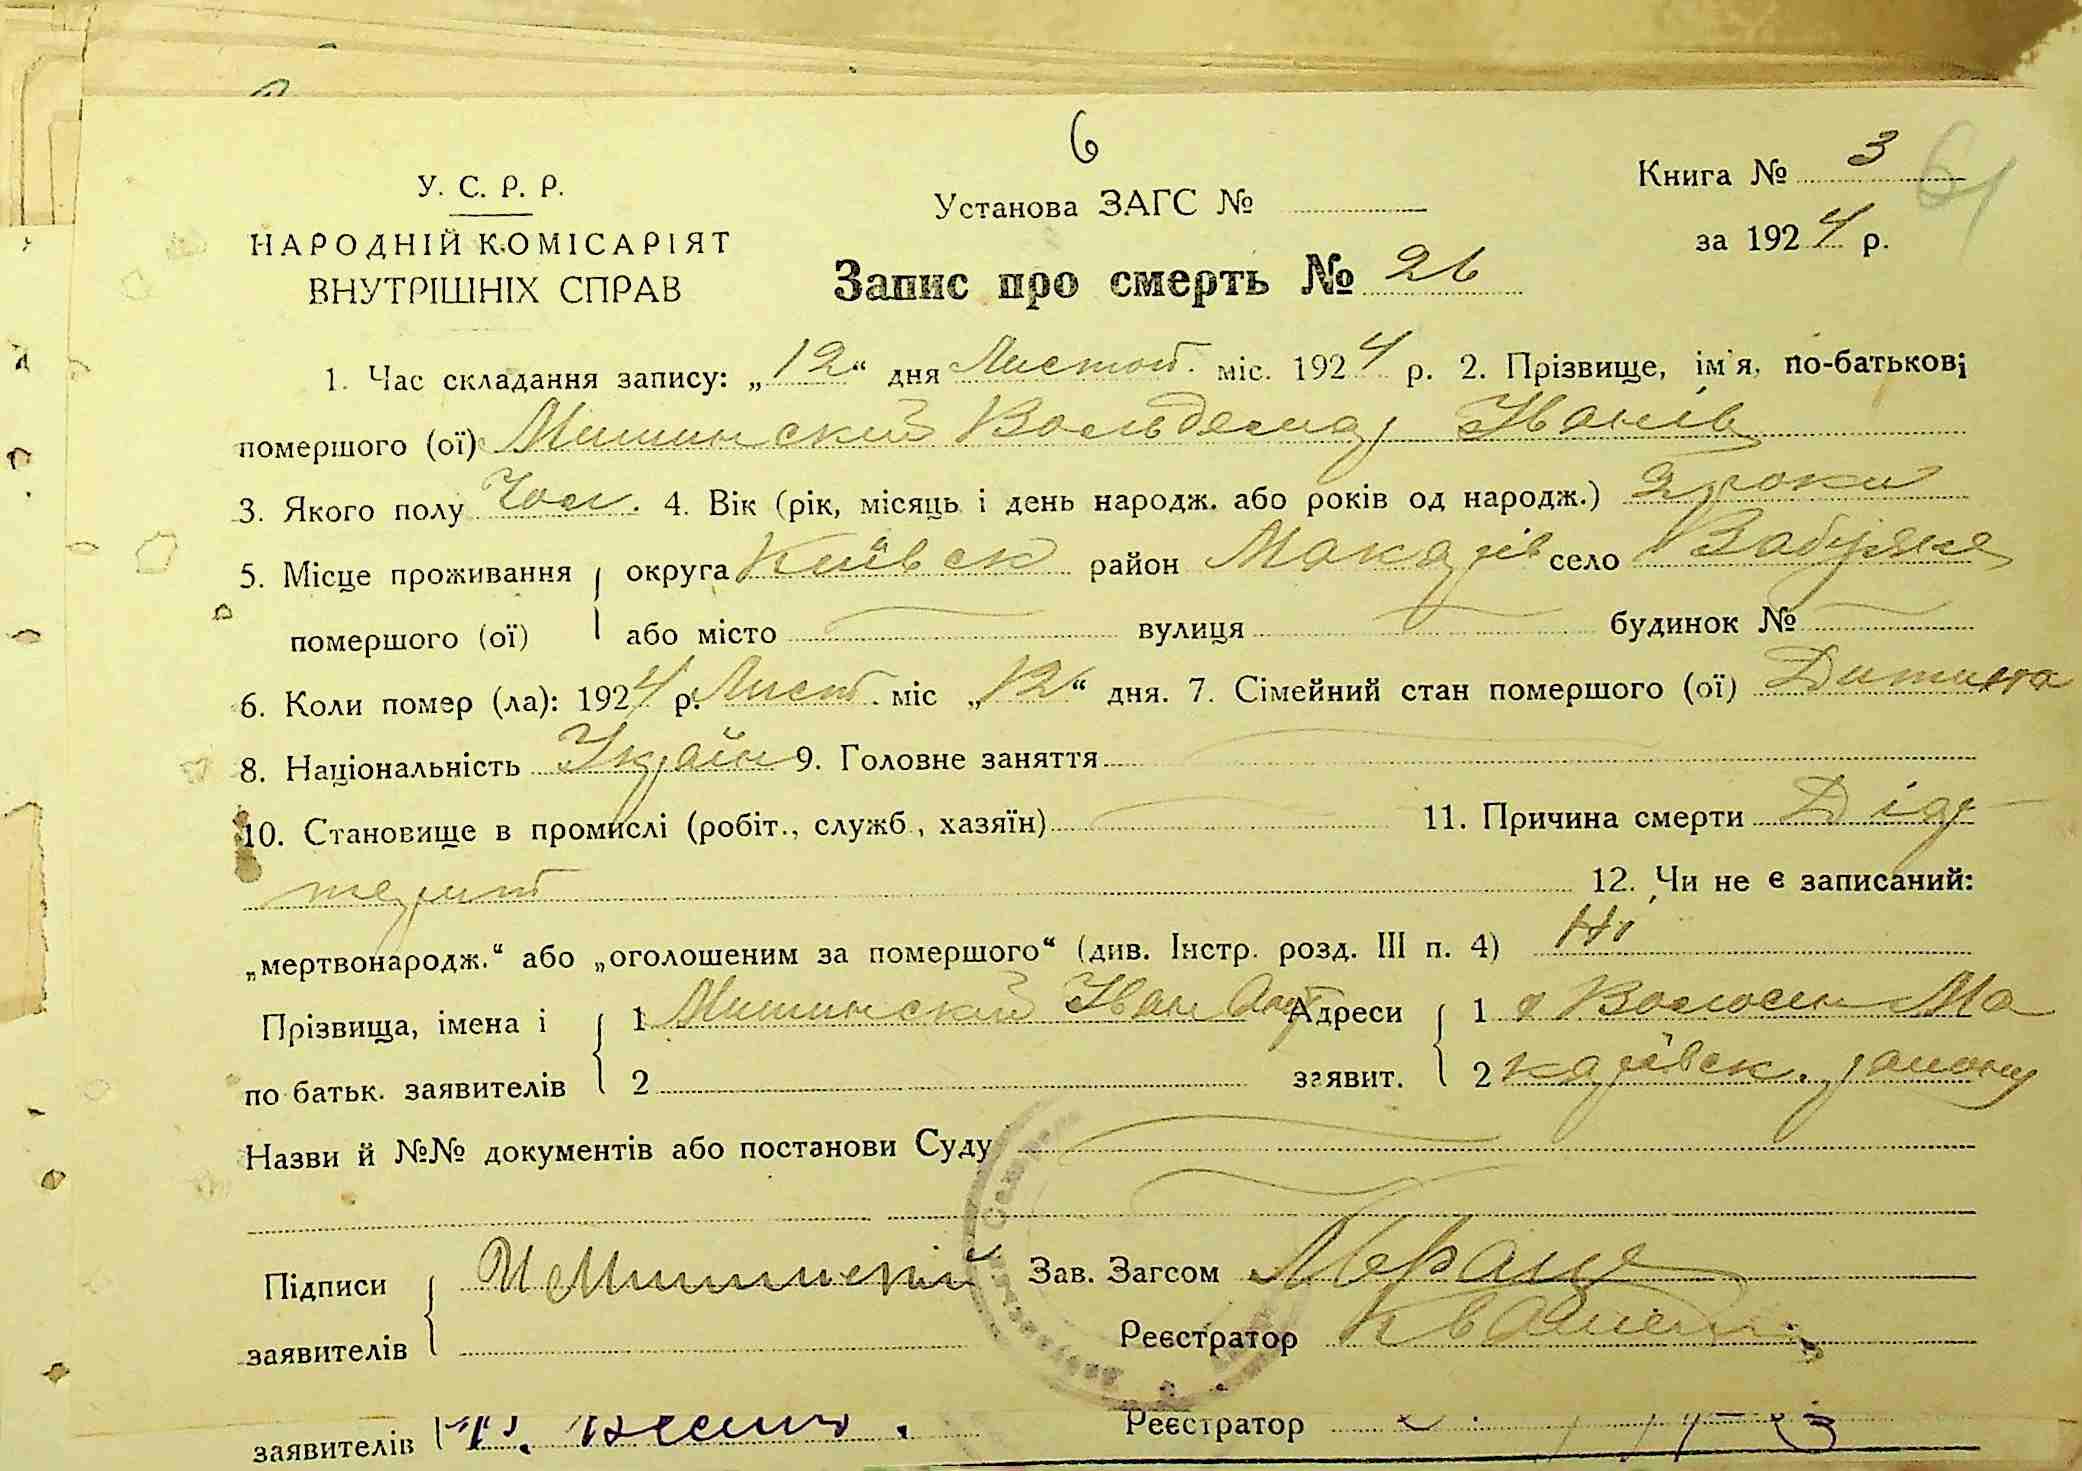 6
У. С. Р. Р.
НАРОДНІЙ КОМІСАРІЯТ
ВНУТРІШНІХ СПРАВ
Установа ЗАГС №
Книга № 3
61
за 1924 р.
Запис про смерть № 26
1. Час складання запису: „12“ дня Листоп. міс. 1924 р. 2. Прізвище, ім'я, по-батькові
помершого (ої) Мишинский Вольдемар Іванів
3. Якого полу Чол. 4. Вік (рік, місяць і день народж. або років од народж.) 2 роки
5. Місце проживання округа Київськ район Макарів село
помершого (ої) або місто вулиця будинок №
6. Коли помер (ла): 1924 р. Лист. міс „12“ дня. 7. Сімейний стан помершого (ої) Дитина
8. Національність Україн 9. Головне заняття
10. Становище в промислі (робіт., служб., хазяїн) 11. Причина смерти Діф-
терит 12. Чи не є записаний:
„мертвонародж.“ або „оголошеним за помершого“ (див. Інстр. розд. III п. 4) Ні
Прізвища, імена і 1 Мишинский Іван Адреси 1 Ма
по батьк. заявителів 2 заявит. 2 карівськ. району
Назви й №№ документів або постанови Суду
Підписи И Мишинский Зав. Загсом
заявителів Реєстратор
заявителів Реєстратор